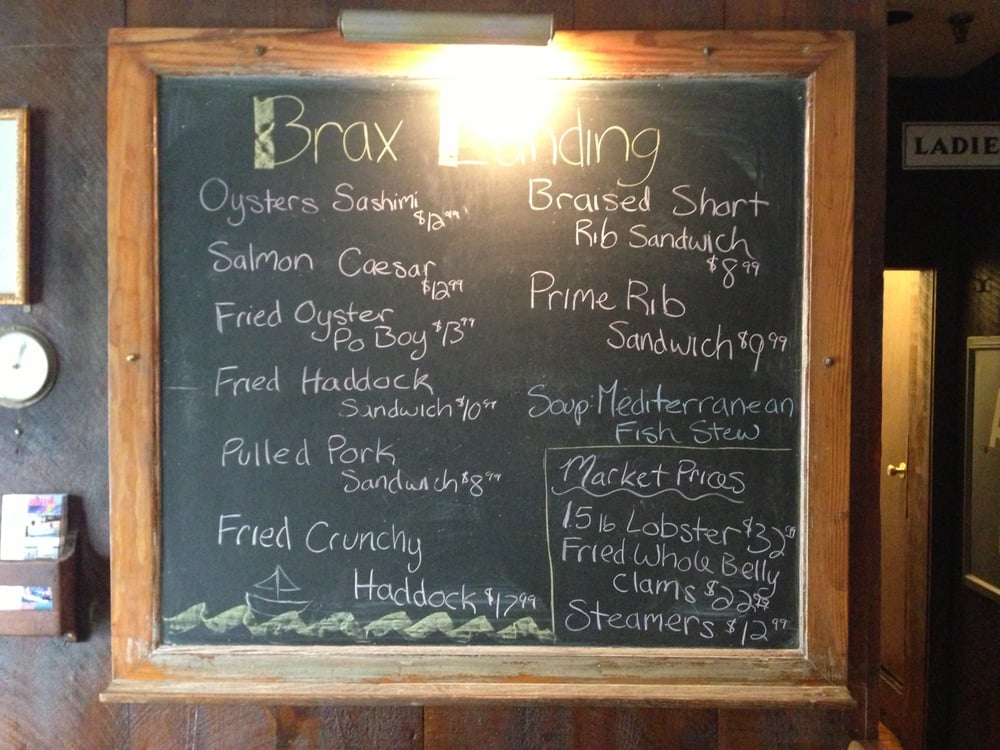 Brax Landing
Oysters Sashimi
$12.99
Salmon Caesar
$12.99
Fried Oyster
Po Boy $13.99
Fried Haddock
Sandwich $10.99
Pulled Pork
Sandwich $8.99
Fried Crunchy
Haddock $17.99
Braised Short
Rib Sandwich
$8.99
Prime Rib
Sandwich $9.99
Soup: Mediterranean
Fish Stew
Market Prices
1.5 lb. Lobster $32.99
Fried Whole Belly
Clams $22.99
Steamers $12.99
LADIE